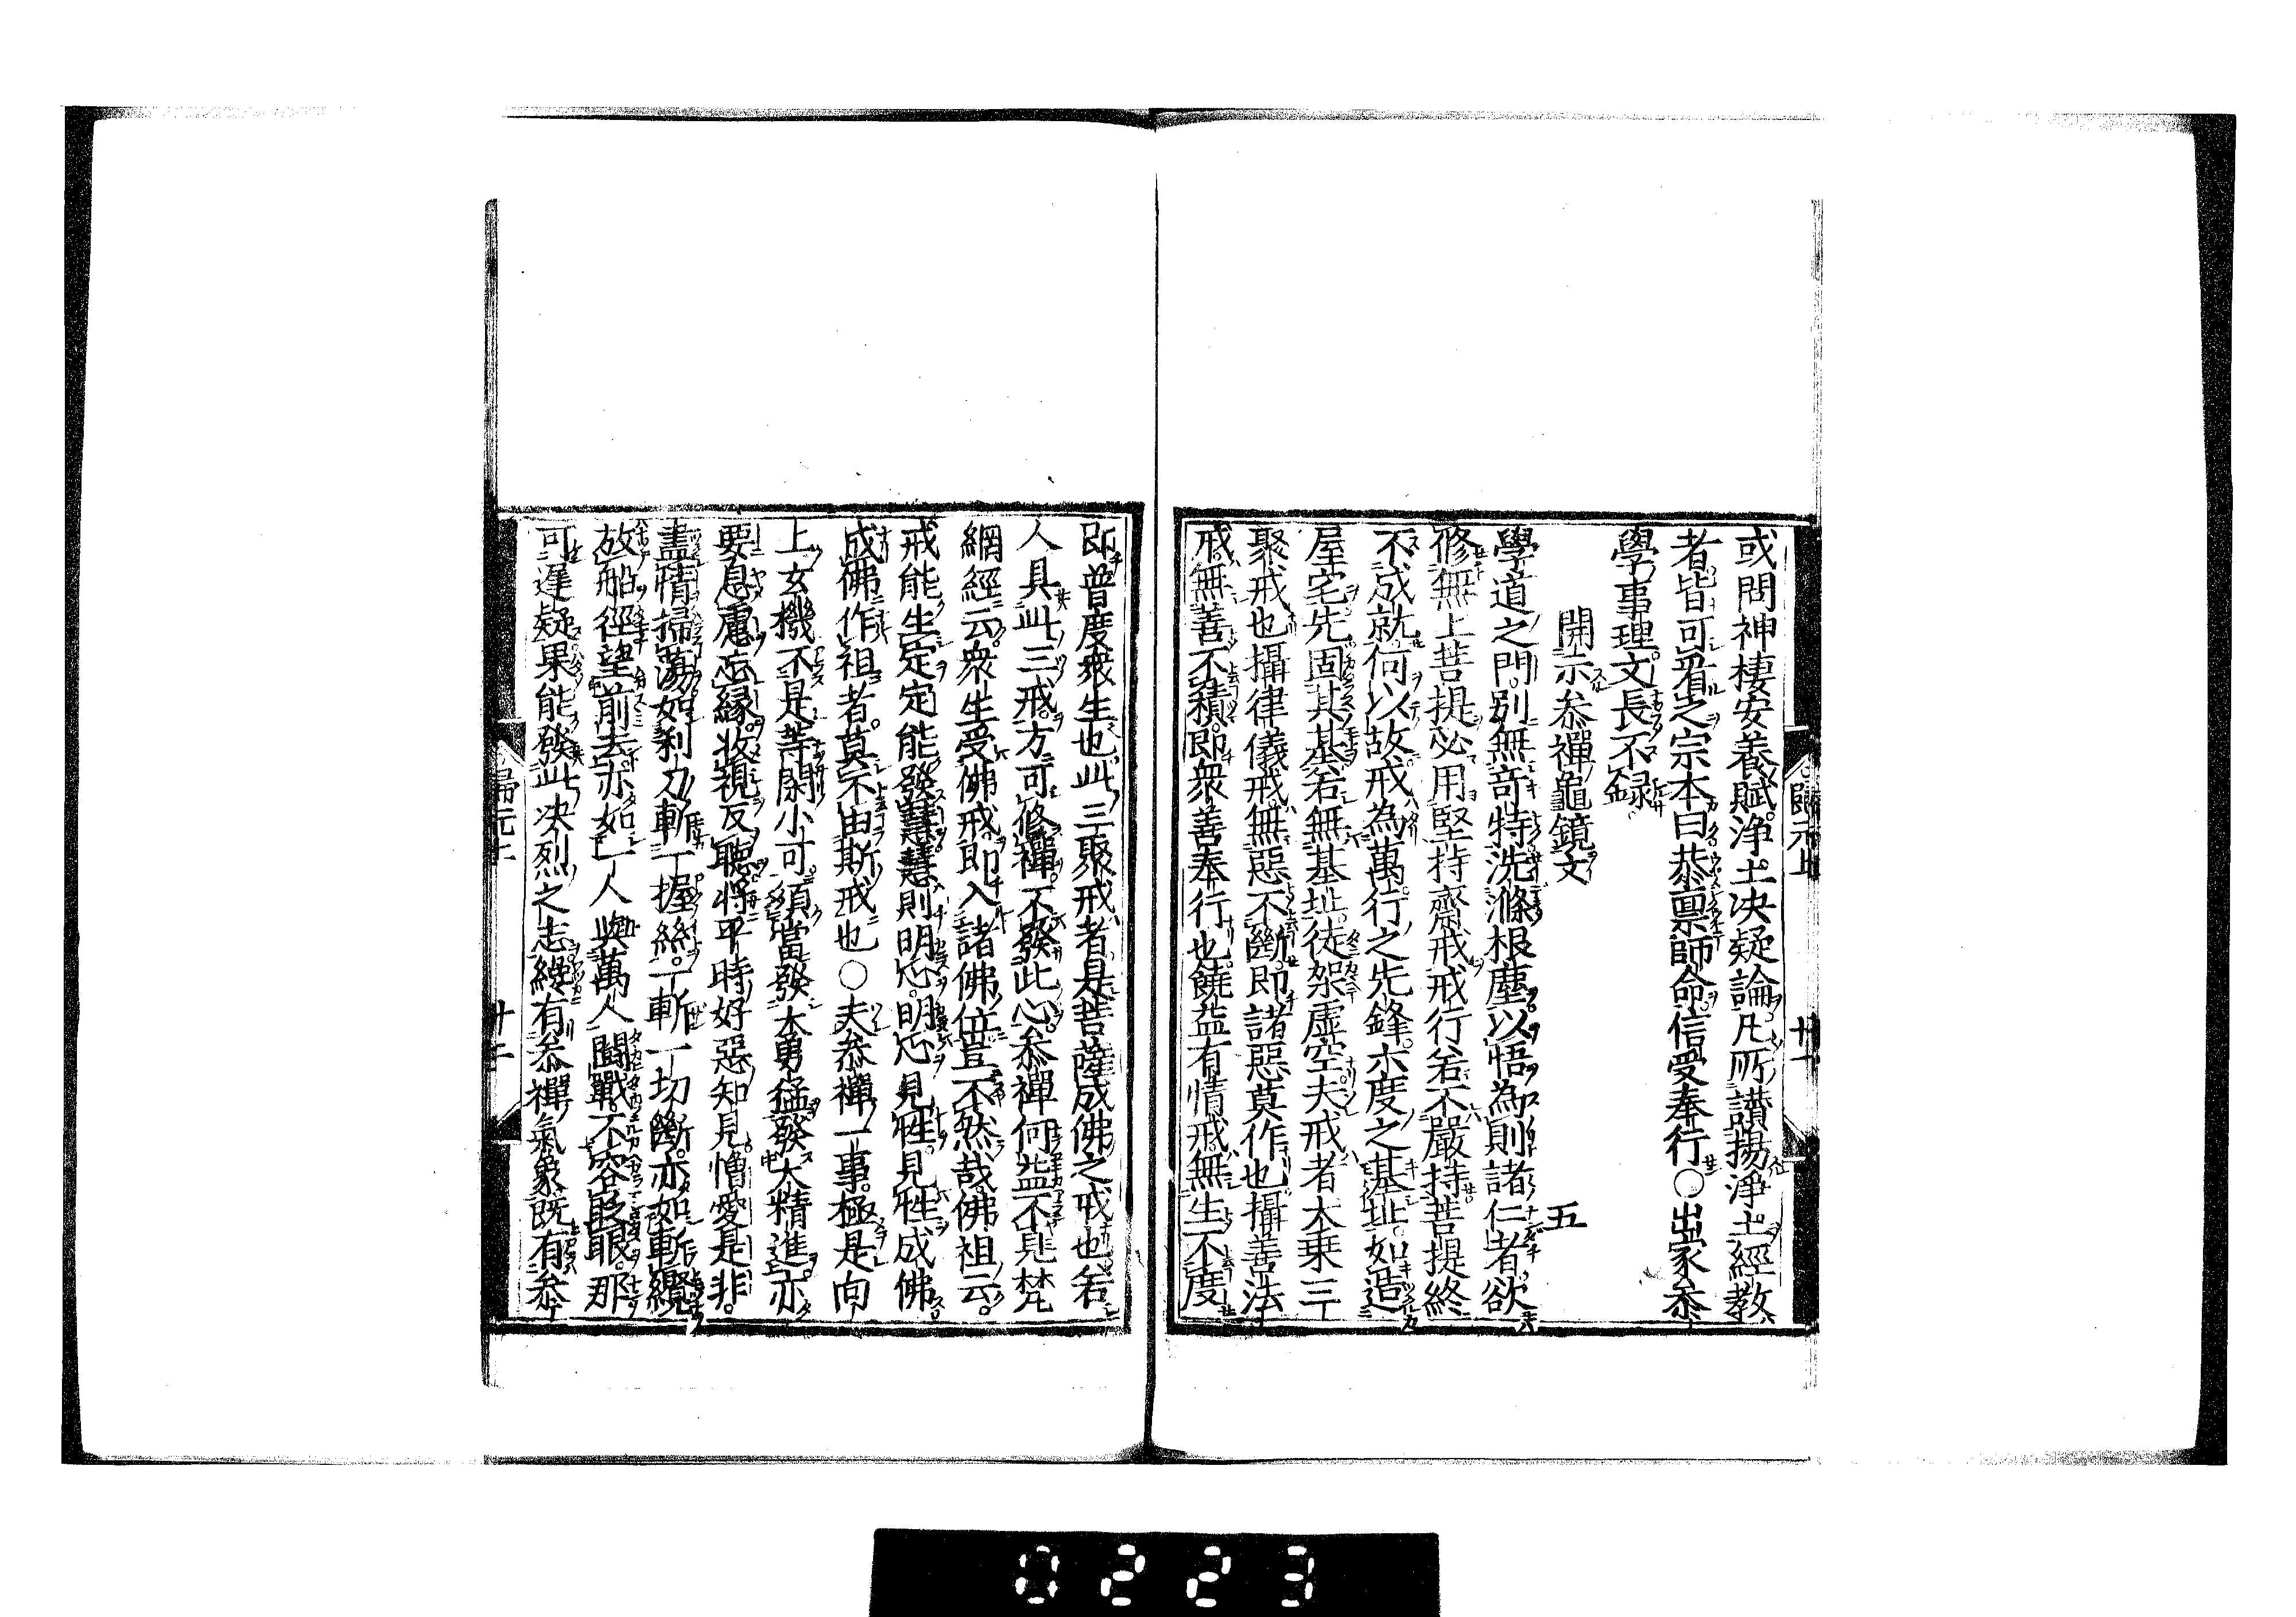 或問神棲安養賦浄土决疑論凡所讃揚浄土經教
者皆可看之宗本曰恭禀師命信受奉行○出家叅
學事理文長不録
開示叅禪龜鏡文 五
學道之門別無竒特洗滌根塵以悟為則諸仁者欲
修無上菩提必用堅持齋戒戒行若不嚴持菩提終
不成就何以故戒為萬行之先鋒六度之基址如造
屋宅先固其基若無基址徒架虚空夫戒者大乗三
聚戒也攝律儀戒無惡不斷即諸惡莫作也攝善法
戒無善不積即衆善奉行也饒益有情戒無生不度
歸元上 廿一
即普度衆生也此三聚戒者是菩薩成佛之戒也若
人具此三戒方可修禪不發此心叅禪何益不見梵
網經云衆生受佛戒即入諸佛位豈不然哉佛祖云
戒能生定定能發慧慧則明心明心見性見性成佛
成佛作祖者莫不由斯戒也○夫叅禪一事極是向
上玄機不是等閑小可須當發大勇猛發大精進亦
要息慮忘縁收視反聽將平時好惡知見憎愛是非
盡情掃蕩如利刀斬一握絲一斬一切斷亦如斬纜
放船徑望前去亦如一人與萬人鬪戰不容眨眼那
可遲疑果能發此决烈之志纔有叅禪氣象既有叅
歸元上 廿二
0223